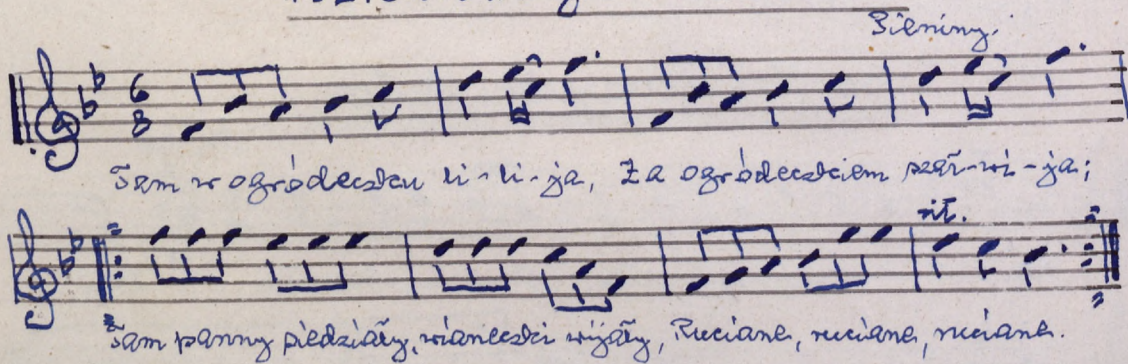 Pieniny.
6
8
Tam w ogródeczku li-li-ja, Za ogródeczkiem szał-wi-ja;
rit.
Tam panny siedziały, wianeczki wijały, Ruciane, ruciane, ruciane.